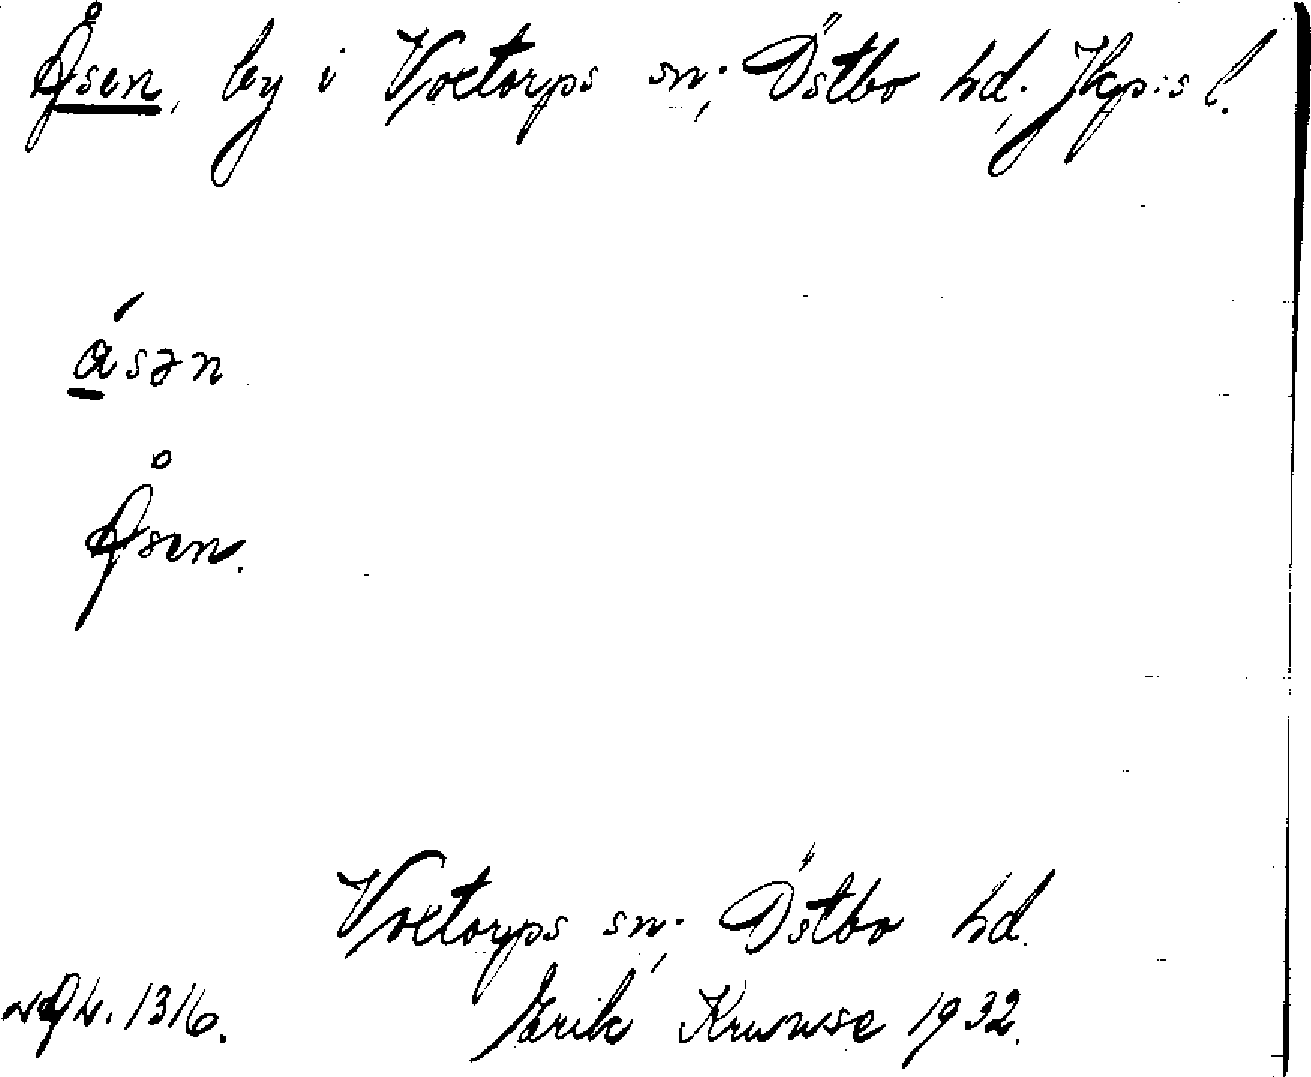 Åsen, by i Voxtorps sn; Östbo hd. Jkp:s l.
ásən
Åsen.
Voxtorps sn; Östbo hd.
Erik Kruuse 1932.
1316.